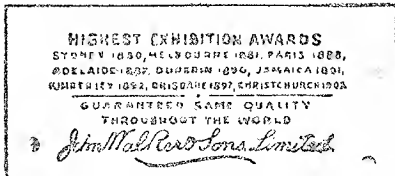 HIGHEST EXHIBITION AWARDS
SYDNEY 1880, MELBOURNE 1881, PARIS 1888,
ADELAIDE 1887, DUNEDIN 1890, JAMAICA 1891,
KIMBERLEY 1892, BRISBANE 1897, CHRISTCHURCH 1906
GUARANTEED SAME QUALITY
THROUGHOUT THE WORLD
John Walker & Sons, Limited.